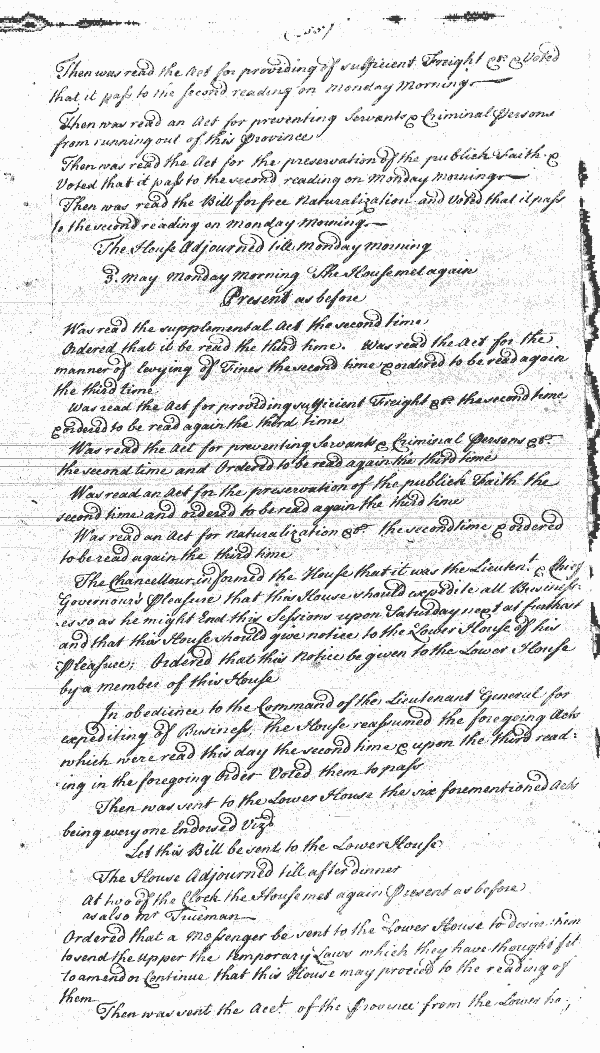 (55)
Then was read the Act for providing of sufficient Freight &c. & Voted
that it pass to the second reading on monday morning
Then was read an Act for preventing Servants & Criminal Persons
from running out of this Province
Then was read the Act for the preservation of the publick Faith &
Voted that it pass to the second reading on Monday morning
Then was read the Bill for free Naturalization and Voted that it pass
to the second reading on monday morning
The House Adjourned till Monday morning
3. May Monday morning The House met again
Present as before
Was read the supplemental Act the second time
Ordered that it be read the third time. Was read the Act for the
manner of Levying of Fines the second time & ordered to be read again
the third time
Was read the Act for providing sufficient Freight &c. the second time
& ordered to be read again the third time
Was read the Act for preventing Servants & Criminal Persons &c.
the second time and Ordered to be read again the third time
Was read an Act for the preservation of the publick Faith the
second time and ordered to be read again the third time
Was read an Act for naturalization &c. the second time & ordered
to be read again the third time
The Chancellour informed the House that it was the Lieuten.t & Chief
Governours Pleasure that this House should expedite all Business:
es so as he might End this Sessions upon Saturday next at furthest
and that this House should give notice to the Lower House of his
Pleasure; Ordered that this Notice be given to the Lower House
by a member of this House
In obedience to the Command of the Lieutenant General for
expediting of Business, the House reassumed the foregoing Acts
which were read this day the second time & upon the third read:
ing in the foregoing Order Voted them to pass
Then was sent to the Lower House the six forementioned Acts
being every one Endorsed Vizt
Let this Bill be sent to the Lower House
The House Adjourned till after dinner
At two of the Clock the House met again Present as before
as also mr Trueman
Ordered that a Messenger be sent to the Lower House to desire them
to send the Upper the temporary Laws which they have thought fit
to amend or Continue that this House may proceed to the reading of
them
Then was sent the Acct. of the Province from the Lower ho:,